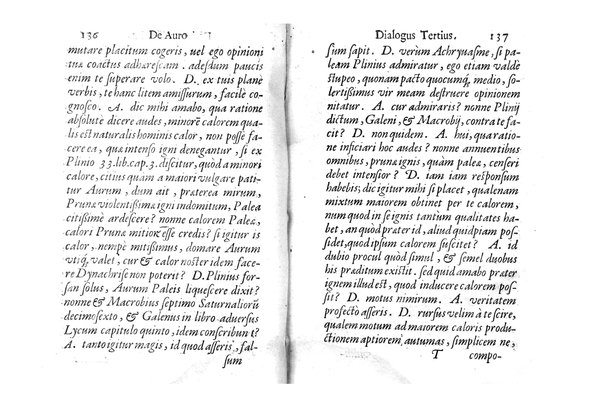 136 De Auro
mutare placitum cogeris, uel ego opinioni
tuæ coactus adhærescam. adesdum paucis
enim te superare volo. D. ex tuis planè
verbis, te hanc litem amissurum, facilè co-
gnosco. A. dic mihi amabo, qua ratione
absolutè dicere audes, minorē calorem qua-
lis est naturalis hominis calor, non posse fa-
cere ea, quæ intenso igni denegantur, si ex
Plinio 33. lib. cap. 3. discitur, quòd a minori
calore, citius quàm a maiori vulgare pati-
tur Aurum, dum ait, præterea mirum,
Prunæ violentissimæ igni indomitum, Palea
citissimè ardescere? nonne calorem Paleæ,
calori Prunæ mitiorē esse credis? si igitur is
calor, nempè mitissimus, domare Aurum
vtiq; valet, cur & calor noster idem face-
re Dynachrise non poterit? D. Plinius for-
san solus, Aurum Paleis liquescere dixit?
nonne & Macrobius septimo Saturnaliorū
decimosexto, & Galenus in libro aduersus
Lycum capitulo quinto, idem conscribunt?
A. tanto igitur magis, id quod asseris, fal-
sum
Dialogus Tertius. 137
sum sapit. D. verùm Achryuasme, si pa-
leam Plinius admiratur, ego etiam valdè
stupeo, quonam pacto quocumq; medio, so-
lertissimus vir meam destruere opinionem
nitatur. A. cur admiraris? nonne Plinij
dictum, Galeni, & Macrobij, contra te fa-
cit? D. non quidem. A. hui, qua ratio-
ne inficiari hoc audes? nonne annuentibus
omnibus, pruna ignis, quàm palea, censeri
debet intensior? D. tam iam responsum
habebis; dic igitur mihi si placet, qualenam
mixtum maiorem obtinet per te calorem,
num quod in se ignis tantum qualitates ha-
bet, an quòd præter id, aliud quidpiam pos-
sidet, quod ipsum calorem suscitet? A. id
dubio procul quòd simul, & semel duobus
his præditum existit. sed quid amabo præter
ignem illud est, quod inducere calorem pos-
sit? D. motus nimirum. A. veritatem
profectò asseris. D. rursus velim à te scire,
qualem motum ad maiorem caloris produ-
ctionem aptiorem autumas, simplicem ne,
T compo-